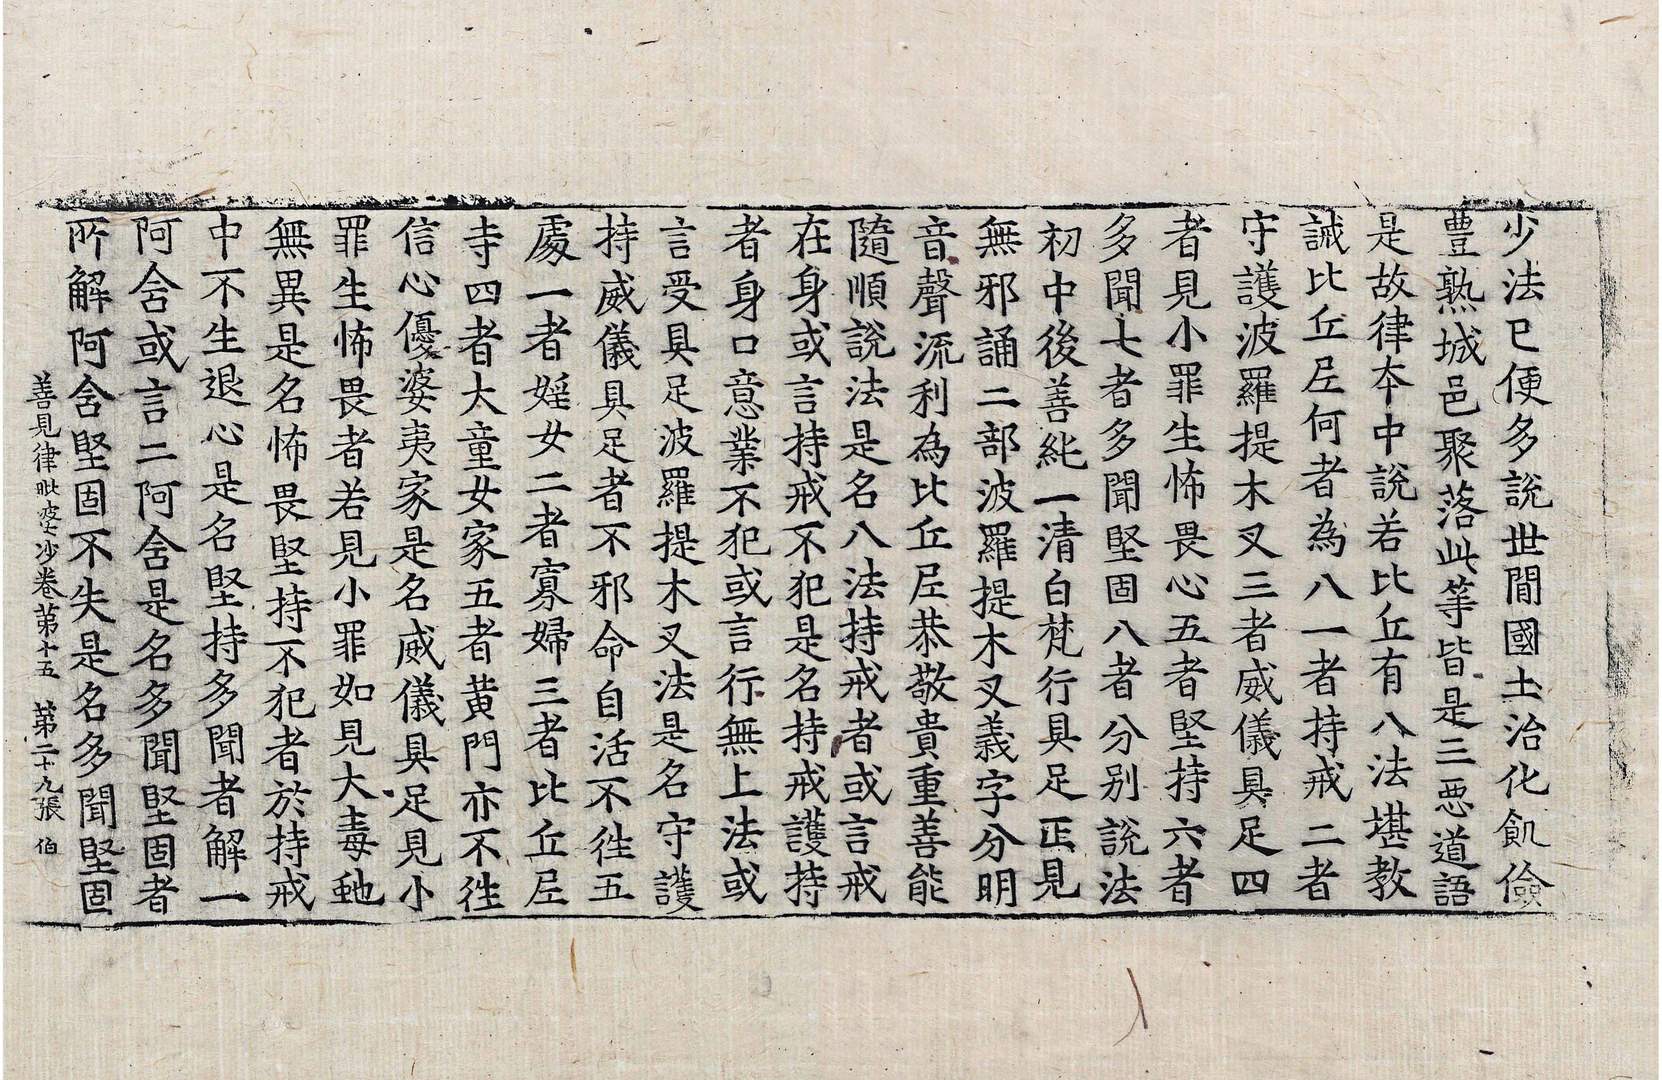 少法已便多說世間國土治化飢儉
豊熟城邑聚落此等皆是三惡道語
是故律本中說若比丘有八法堪教
誡比丘尼何者為八一者持戒二者
守護波羅提木叉三者威儀具足四
者見小罪生怖畏心五者堅持六者
多聞七者多聞堅固八者分别說法
初中後善純一清白梵行具足正見
無邪誦二部波羅提木叉義字分明
音聲流利為比丘尼恭敬貴重善能
隨順說法是名八法持戒者或言戒
在身或言持戒不犯是名持戒護持
者身口意業不犯或言行無上法或
言受具足波羅提木叉法是名守護
持威儀具足者不邪命自活不往五
處一者婬女二者寡婦三者比丘尼
寺四者大童女家五者黄門亦不往
信心優婆夷家是名威儀具足見小
罪生怖畏者若見小罪如見大毒虵
無異是名怖畏堅持不犯者於持戒
中不生退心是名堅持多聞者解一
阿含或言二阿含是名多聞堅固者
所解阿含堅固不失是名多聞堅固
善見律毗婆沙卷第十五　第二十九張　伯